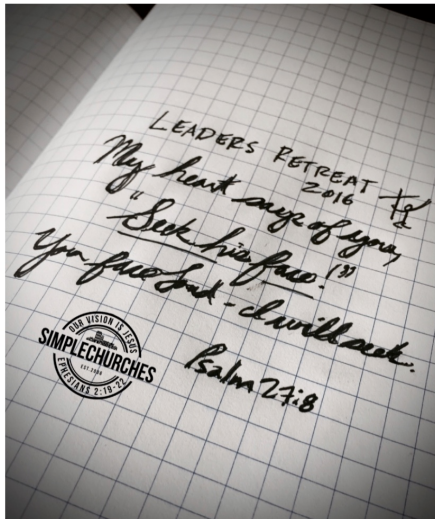 LEADERS RETREAT
2016
My heart says of you,
"Seek his face!"
Your face Lord - I will seek.
Psalm 27:8
OUR VISION IS JESUS
SIMPLECHURCHES
EST. 2008
EPHESIANS 2:19-22